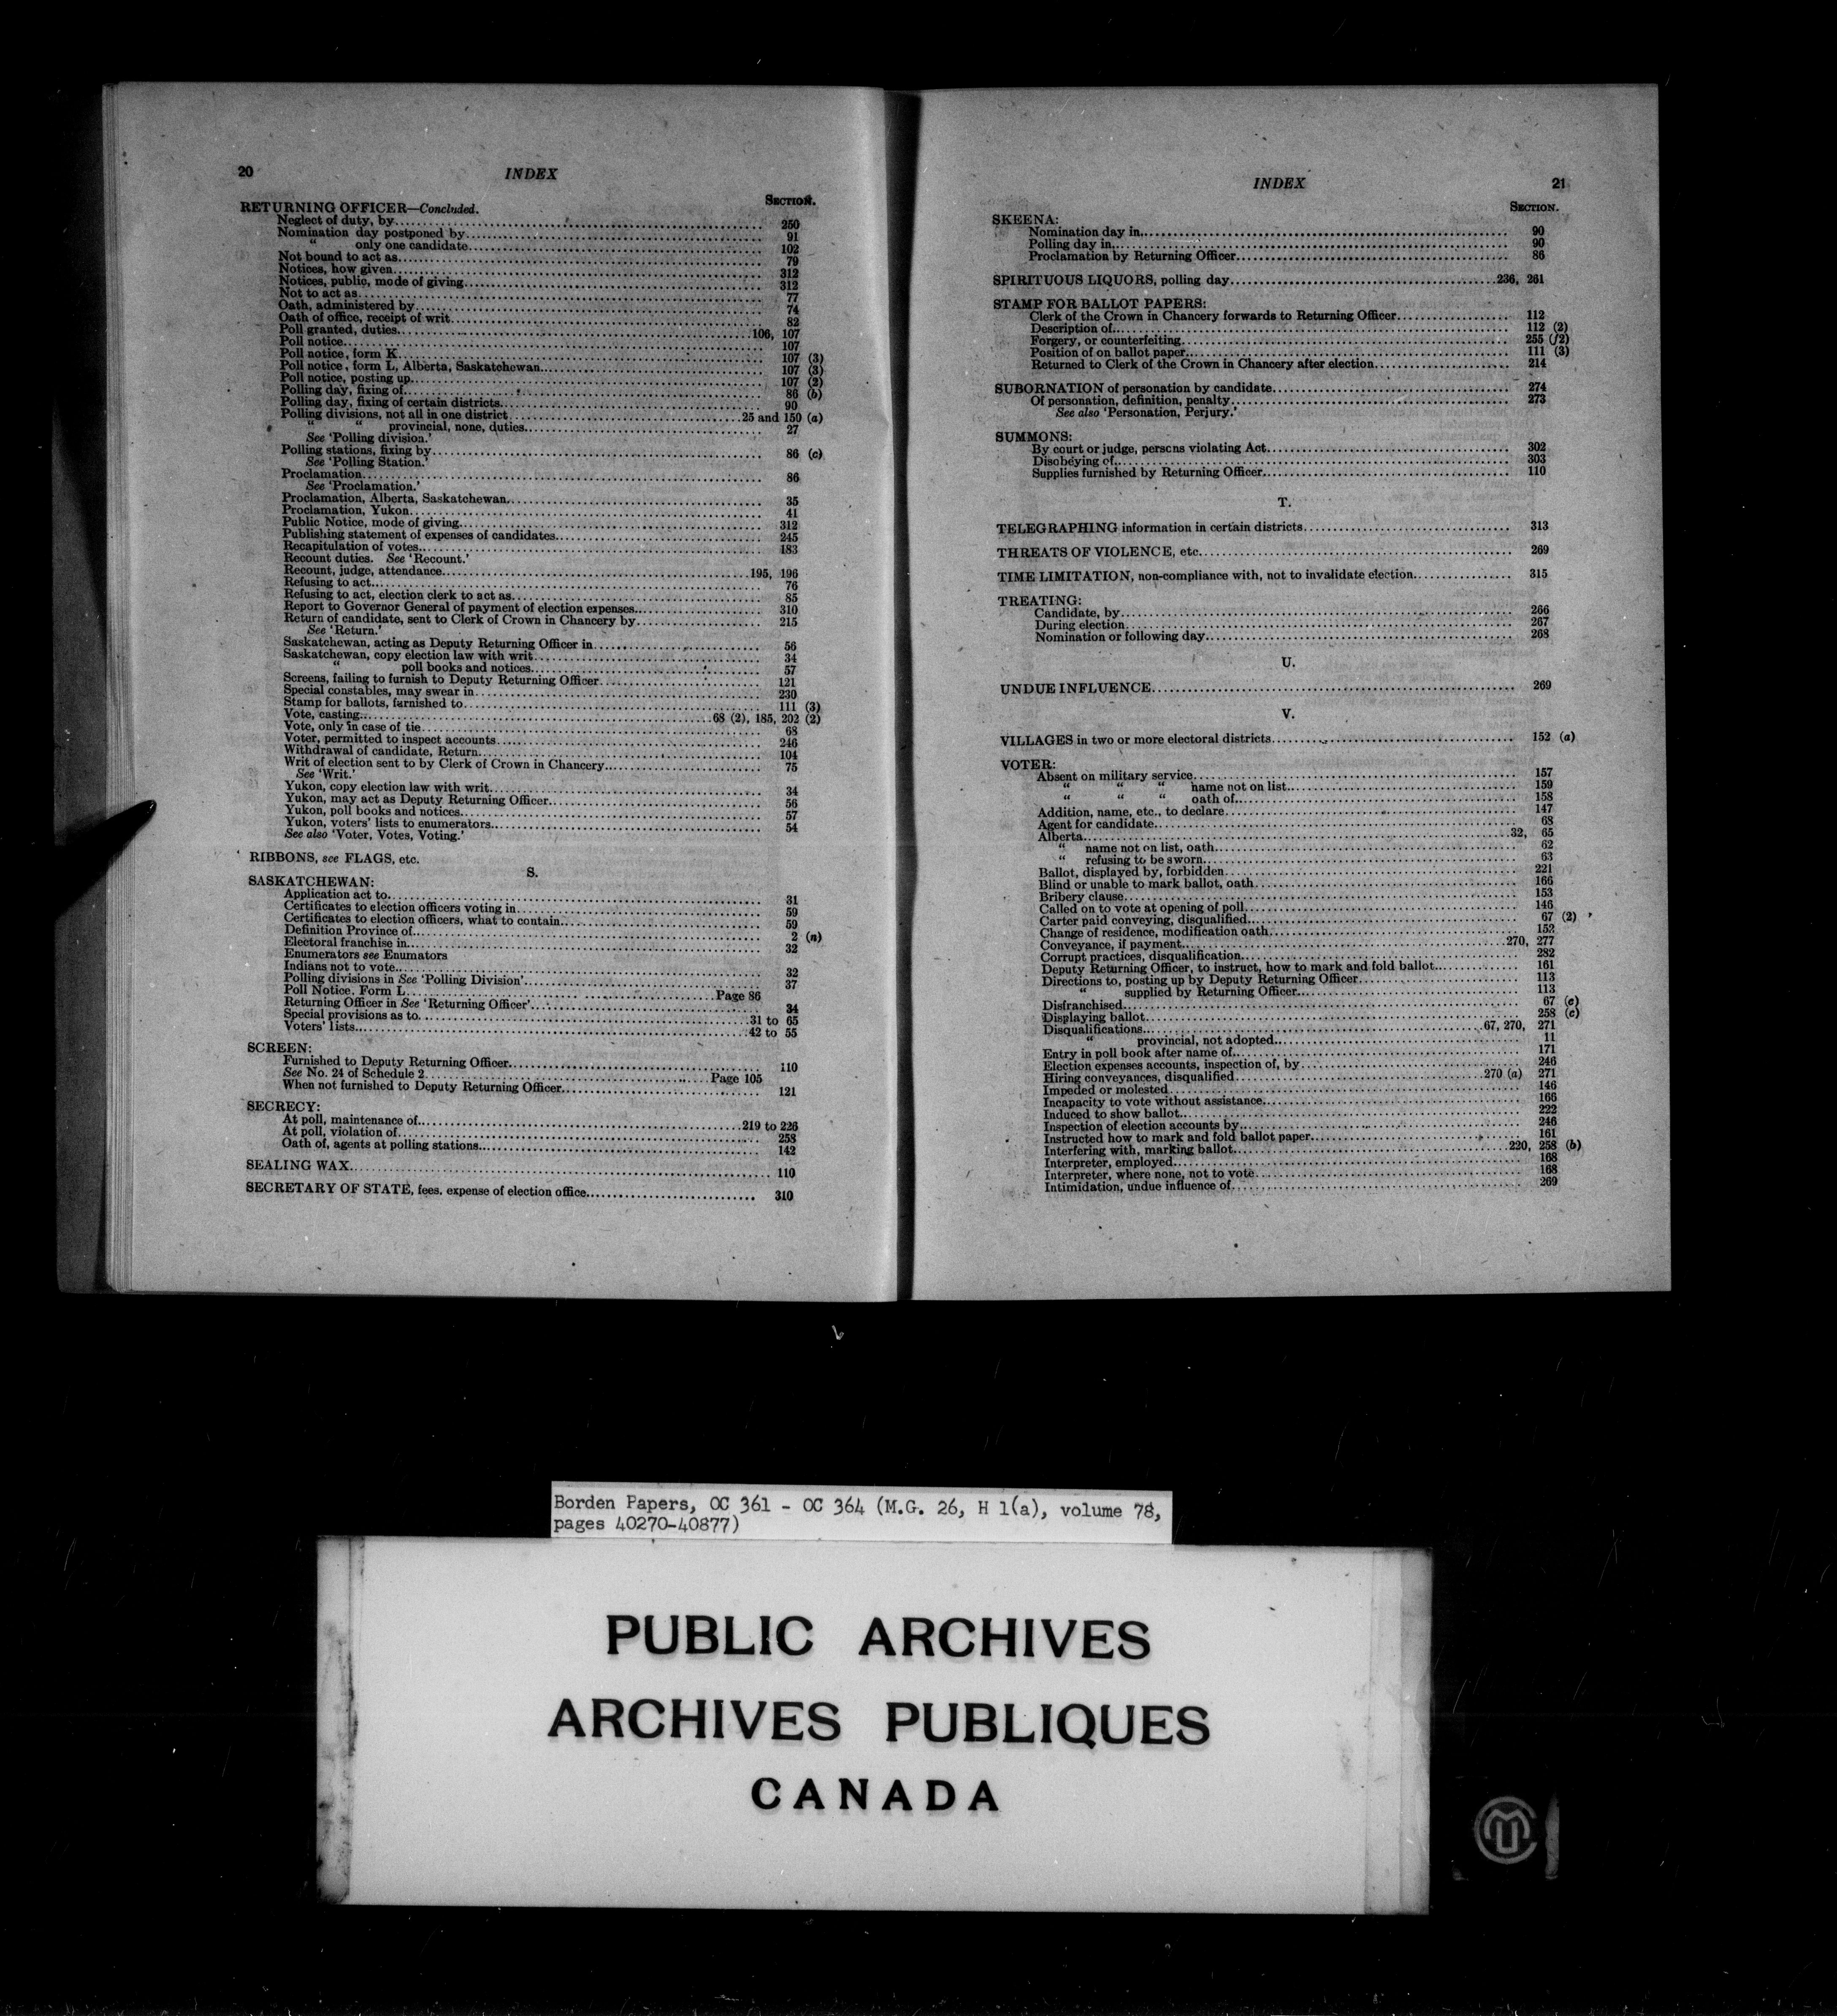 20
INDEX
SECTION.
RETURNING OFFICER—Concluded.
Neglect of duty, by 250
Nomination day postponed by 91
“ only one candidate 102
Not bound to act as 79
Notices, how given 312
Notices, public, mode of giving 312
Not to act as 77
Oath, administered by 74
Oath of office, receipt of writ 82
Poll granted, duties 106, 107
Poll notice 107
Poll notice, form K 107 (3)
Poll notice, form L, Alberta, Saskatchewan 107 (3)
Poll notice, posting up 107 (2)
Polling day, fixing of 86 (b)
Polling day, fixing of certain districts 90
Polling divisions, not all in one district 25 and 150 (a)
“ “ provincial, none, duties 27
See ‘Polling division.’
Polling stations, fixing by 86 (c)
See ‘Polling Station.’
Proclamation 86
See ‘Proclamation.’
Proclamation, Alberta, Saskatchewan 35
Proclamation, Yukon 41
Public Notice, mode of giving 312
Publishing statement of expenses of candidates 245
Recapitulation of votes 183
Recount duties. See ‘Recount.’
Recount, judge, attendance 195, 196
Refusing to act 76
Refusing to act, election clerk to act as 85
Report to Governor General of payment of election expenses 310
Return of candidate, sent to Clerk of Crown in Chancery by 215
See ‘Return.’
Saskatchewan, acting as Deputy Returning Officer in 56
Saskatchewan, copy election law with writ 34
“ poll books and notices 57
Screens, failing to furnish to Deputy Returning Officer 121
Special constables, may swear in 230
Stamp for ballots, furnished to 111 (3)
Vote, casting 68 (2), 185, 202 (2)
Vote, only in case of tie 68
Voter, permitted to inspect accounts 246
Withdrawal of candidate, Return 104
Writ of election sent to by Clerk of Crown in Chancery 75
See ‘Writ.’
Yukon, copy election law with writ 34
Yukon, may act as Deputy Returning Officer 56
Yukon, poll books and notices 57
Yukon, voters’ lists to enumerators 54
See also ‘Voter, Votes, Voting.’
RIBBONS, see FLAGS, etc.
S.
SASKATCHEWAN:
Application act to 31
Certificates to election officers voting in 59
Certificates to election officers, what to contain 59
Definition Province of 2 (n)
Electoral franchise in 32
Enumerators see Enumators
Indians not to vote 32
Polling divisions in See ‘Polling Division’ 37
Poll Notice. Form L Page 86
Returning Officer in See ‘Returning Officer’ 34
Special provisions as to 31 to 65
Voters’ lists 42 to 55
SCREEN:
Furnished to Deputy Returning Officer 110
See No. 24 of Schedule 2 Page 105
When not furnished to Deputy Returning Officer 121
SECRECY:
At poll, maintenance of 219 to 226
At poll, violation of 258
Oath of, agents at polling stations 142
SEALING WAX 110
SECRETARY OF STATE, fees, expense of election office 310
INDEX
21
SECTION.
SKEENA:
Nomination day in 90
Polling day in 90
Proclamation by Returning Officer 86
SPIRITUOUS LIQUORS, polling day 236, 261
STAMP FOR BALLOT PAPERS:
Clerk of the Crown in Chancery forwards to Returning Officer 112
Description of 112 (2)
Forgery, or counterfeiting 255 (f2)
Position of on ballot paper 111 (3)
Returned to Clerk of the Crown in Chancery after election 214
SUBORNATION of personation by candidate 274
Of personation, definition, penalty 273
See also ‘Personation, Perjury.’
SUMMONS:
By court or judge, persons violating Act 302
Disobeying of 303
Supplies furnished by Returning Officer 110
T.
TELEGRAPHING information in certain districts 313
THREATS OF VIOLENCE, etc. 269
TIME LIMITATION, non-compliance with, not to invalidate election 315
TREATING:
Candidate, by 266
During election 267
Nomination or following day 268
U.
UNDUE INFLUENCE 269
V.
VILLAGES in two or more electoral districts 152 (a)
VOTER:
Absent on military service 157
“ “ “ name not on list 159
“ “ “ oath of 158
Addition, name, etc., to declare 147
Agent for candidate 68
Alberta 32, 65
“ name not on list, oath 62
“ refusing to be sworn 63
Ballot, displayed by, forbidden 221
Blind or unable to mark ballot, oath 166
Bribery clause 153
Called on to vote at opening of poll 146
Carter paid conveying, disqualified 67 (2)
Change of residence, modification oath 153
Conveyance, if payment 270, 277
Corrupt practices, disqualification 282
Deputy Returning Officer, to instruct, how to mark and fold ballot 161
Directions to, posting up by Deputy Returning Officer 113
“ supplied by Returning Officer 113
Disfranchised 67 (e)
Displaying ballot 258 (c)
Disqualifications 67, 270, 271
“ provincial, not adopted 11
Entry in poll book after name of 171
Election expenses accounts, inspection of, by 246
Hiring conveyances, disqualified 270 (a) 271
Impeded or molested 146
Incapacity to vote without assistance 166
Induced to show ballot 222
Inspection of election accounts by 246
Instructed how to mark and fold ballot paper 161
Interfering with, marking ballot 220, 258 (b)
Interpreter, employed 168
Interpreter, where none, not to vote 168
Intimidation, undue influence of 269
Borden Papers, OC 361 - OC 364 (M.G. 26, H 1(a), volume 78,
pages 40270-40877)
PUBLIC ARCHIVES
ARCHIVES PUBLIQUES
CANADA